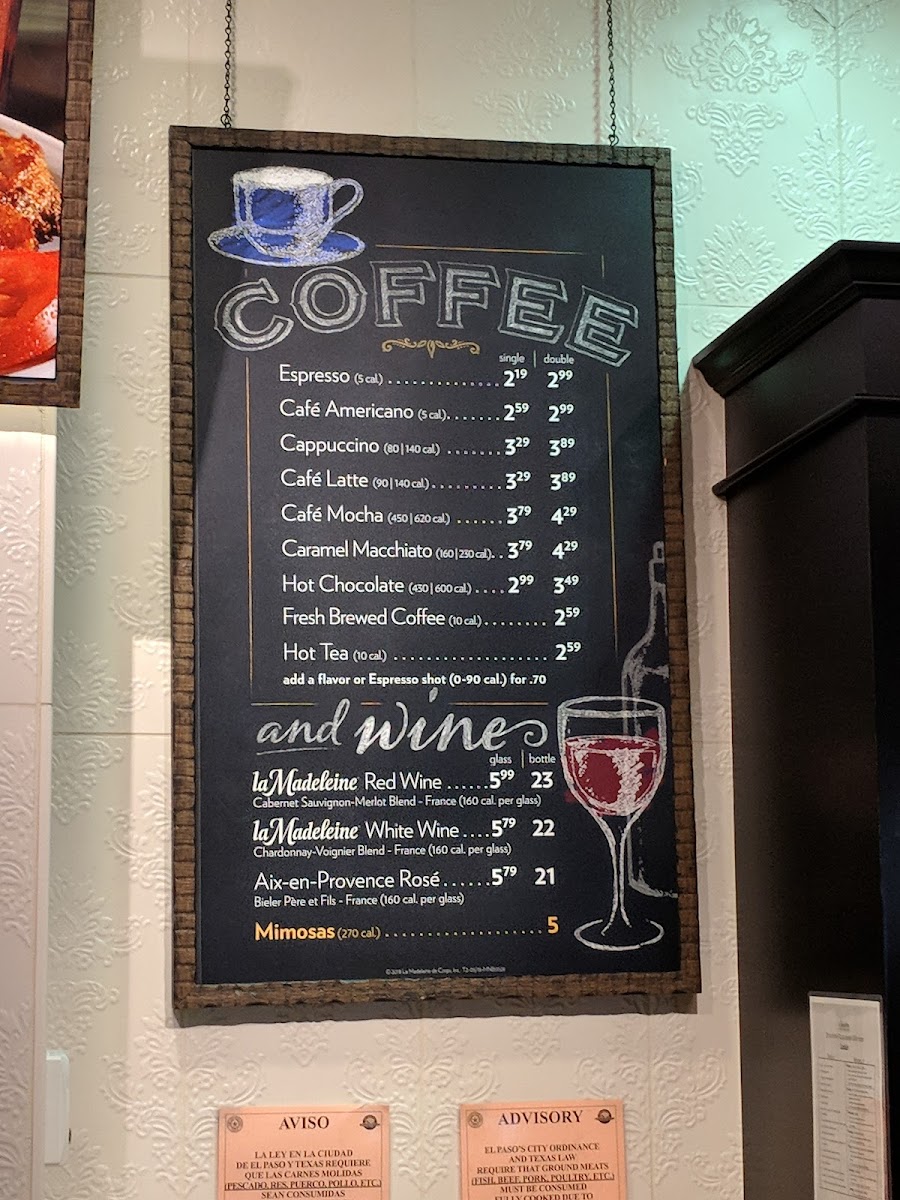 COFFEE
single | double
Espresso (5 cal.) ................ 2¹⁹ 2⁹⁹
Café Americano (5 cal.)....... 2⁵⁹ 2⁹⁹
Cappuccino (80|140 cal.) ....... 3²⁹ 3⁸⁹
Café Latte (90|140 cal.)......... 3²⁹ 3⁸⁹
Café Mocha (450|620 cal.) ...... 3⁷⁹ 4²⁹
Caramel Macchiato (160|230 cal.).. 3⁷⁹ 4²⁹
Hot Chocolate (430|600 cal.) .... 2⁹⁹ 3⁴⁹
Fresh Brewed Coffee (10 cal.)........ 2⁵⁹
Hot Tea (10 cal.) .................... 2⁵⁹
add a flavor or Espresso shot (0-90 cal.) for .70
and wine
glass | bottle
la Madeleine Red Wine ...... 5⁹⁹ 23
Cabernet Sauvignon-Merlot Blend - France (160 cal. per glass)
la Madeleine White Wine .... 5⁷⁹ 22
Chardonnay-Voignier Blend - France (160 cal. per glass)
Aix-en-Provence Rosé...... 5⁷⁹ 21
Bieler Père et Fils - France (160 cal. per glass)
Mimosas (270 cal.) ..................... 5
AVISO
LA LEY EN LA CIUDAD
DE EL PASO Y TEXAS REQUIERE
QUE LAS CARNES MOLIDAS
(PESCADO, RES, PUERCO, POLLO, ETC.)
SEAN CONSUMIDAS
ADVISORY
EL PASO'S CITY ORDINANCE
AND TEXAS LAW
REQUIRE THAT GROUND MEATS
(FISH, BEEF, PORK, POULTRY, ETC.)
MUST BE CONSUMED
FULLY COOKED DUE TO